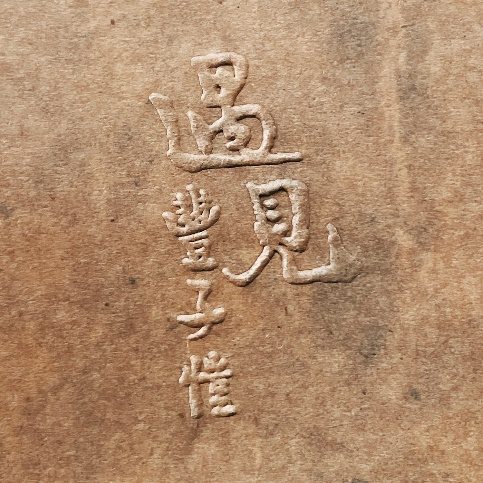 遇見
豐子愷